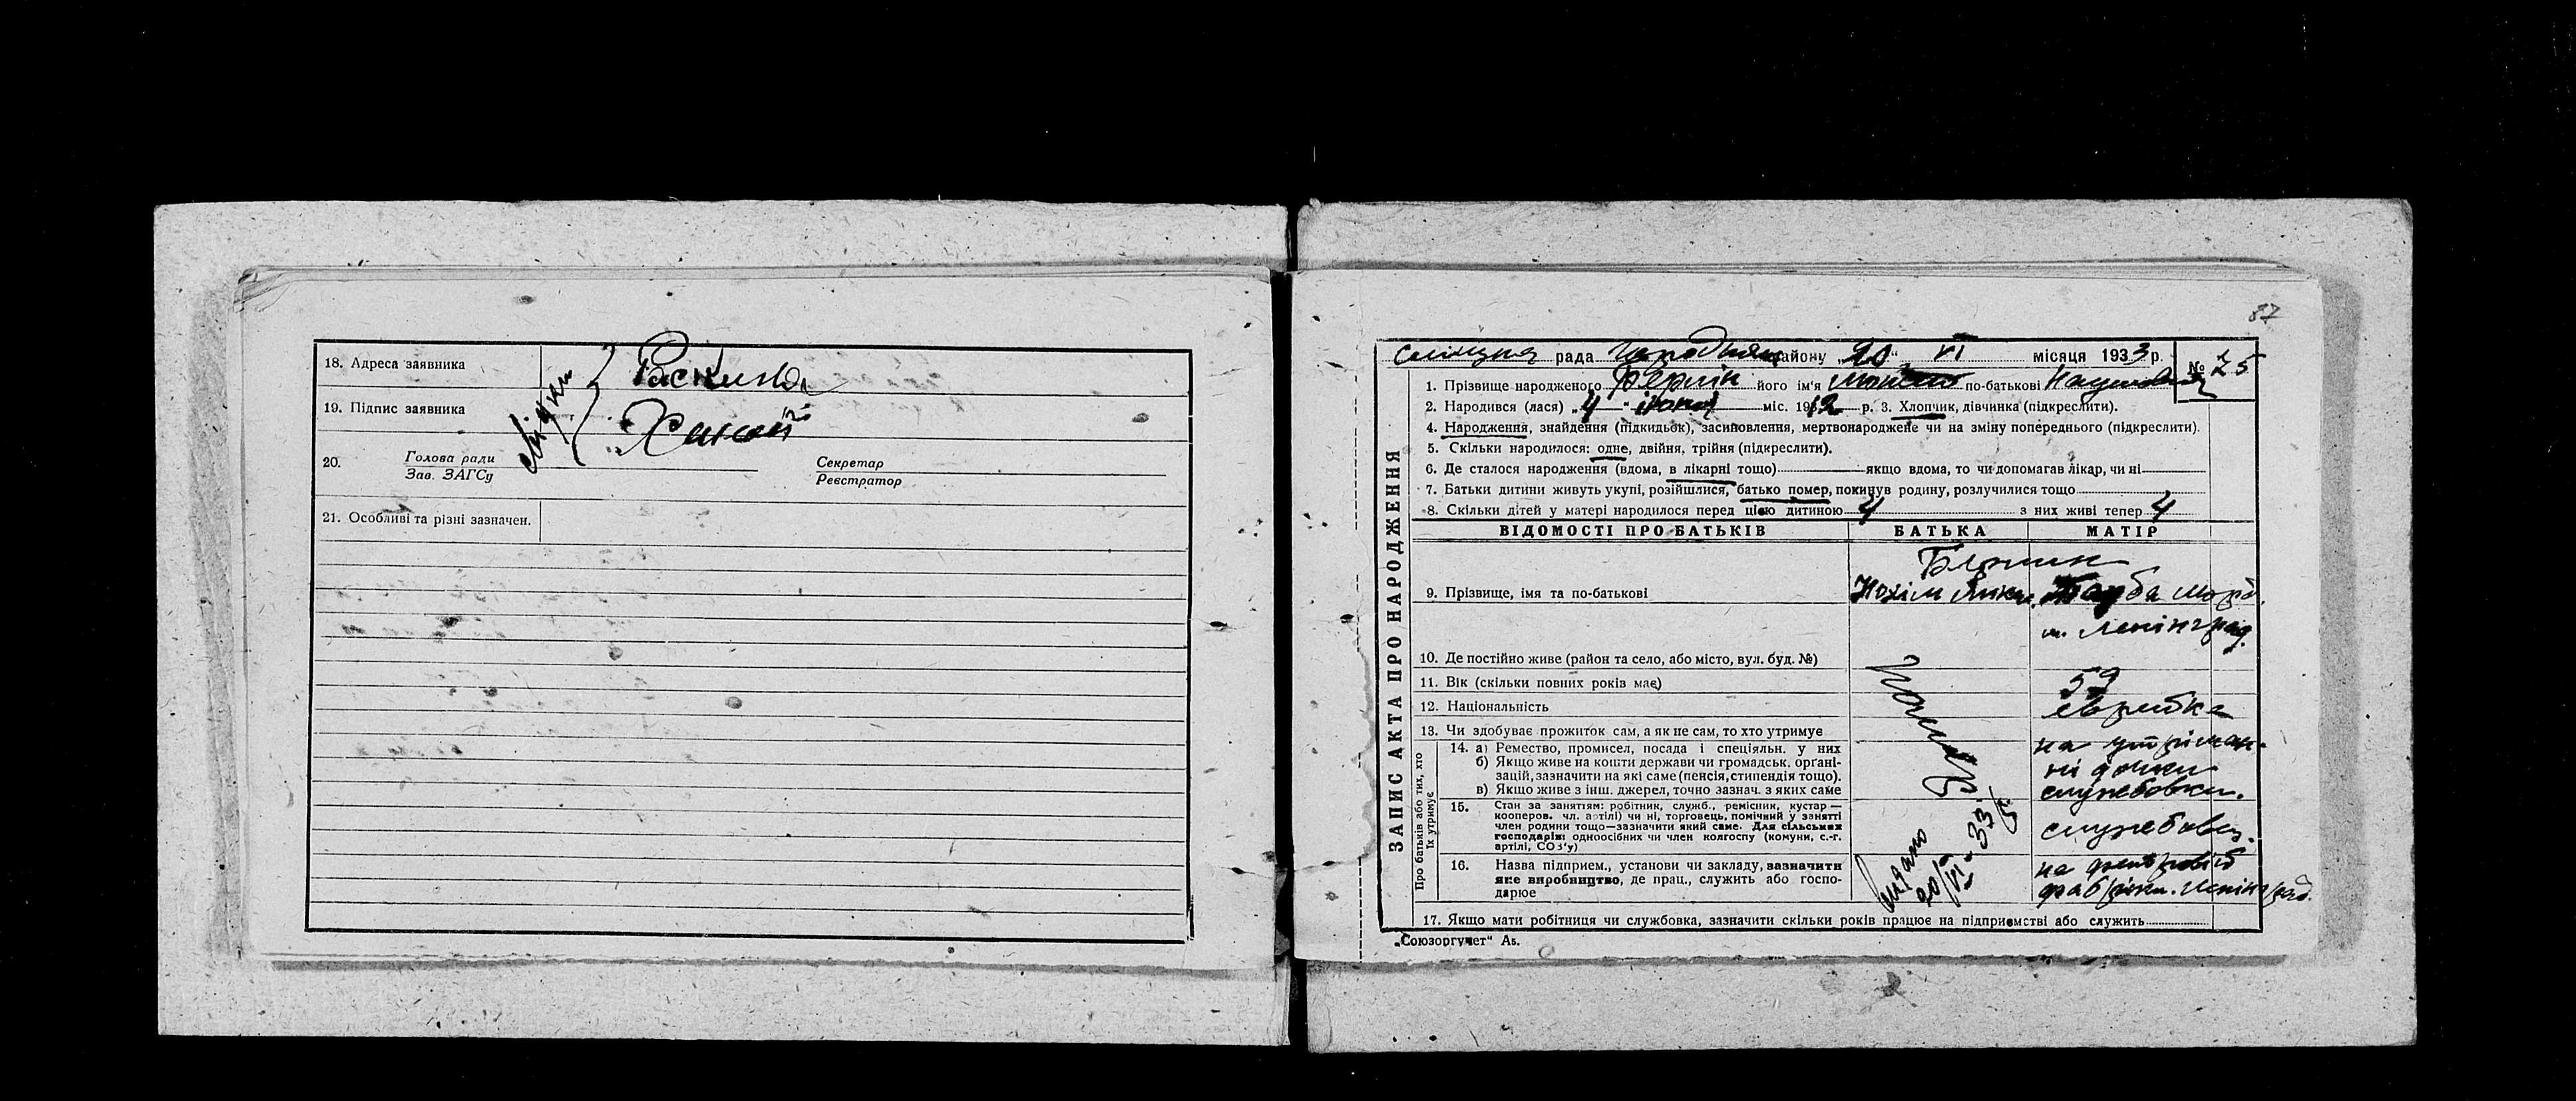 18. Адреса заявника
Свідки
Раскина
19. Підпис заявника
20. Голова ради
Зав. ЗАГСу
Секретар
Реєстратор
21. Особливі та різні зазначен.
87
рада району 20 " VI місяця 1933 р.
№ 25
ЗАПИС АКТА ПРО НАРОДЖЕННЯ
1. Прізвище народженого його ім'я по-батькові
2. Народився (лася) „4 " міс. 1912 р. 3. Хлопчик, дівчинка (підкреслити).
4. Народження, знайдення (підкидьок), засиновлення, мертвонароджене чи на зміну попереднього (підкреслити).
5. Скільки народилося: одне, двійня, трійня (підкреслити).
6. Де сталося народження (вдома, в лікарні тощо) якщо вдома, то чи допомагав лікар, чи ні
7. Батьки дитини живуть укупі, розійшлися, батько помер, покинув родину, розлучилися тощо
8. Скільки дітей у матері народилося перед цією дитиною 4 з них живі тепер 4
ВІДОМОСТІ ПРО БАТЬКІВ
БАТЬКА
МАТІР
9. Прізвище, імя та по-батькові
Нохім
Тауба Морд.
м. Ленінград.
10. Де постійно живе (район та село, або місто, вул. буд. №)
11. Вік (скільки повних років має)
59
12. Національність
еврейка
Помер
13. Чи здобуває прожиток сам, а як не сам, то хто утримує
на утриман-
ні дочки
службовки.
Про батьків або тих, хто
їх утримує
14. а) Ремество, промисел, посада і спеціяльн. у них
б) Якщо живе на кошти держави чи громадськ. орґані-
зацій, зазначити на які саме (пенсія, стипендія тощо).
в) Якщо живе з інш. джерел, точно зазнач. з яких саме
15. Стан за заняттям: робітник, служб., ремісник, кустар —
кооперов. чл. артілі) чи ні, торговець, помічний у занятті
член родини тощо—зазначити який саме. Для сільських
господарів: одноосібних чи член колгоспу (комуни, с.-г.
артілі, СОЗ'у)
службовец.
16. Назва підприєм., установи чи закладу, зазначити
яке виробництво, де прац., служить або госпо-
дарює
Видано
20/VI-33
на
фабрики. Ленінград.
17. Якщо мати робітниця чи службовка, зазначити скільки років працює на підприємстві або служить
„Союзоргучет“ А5.